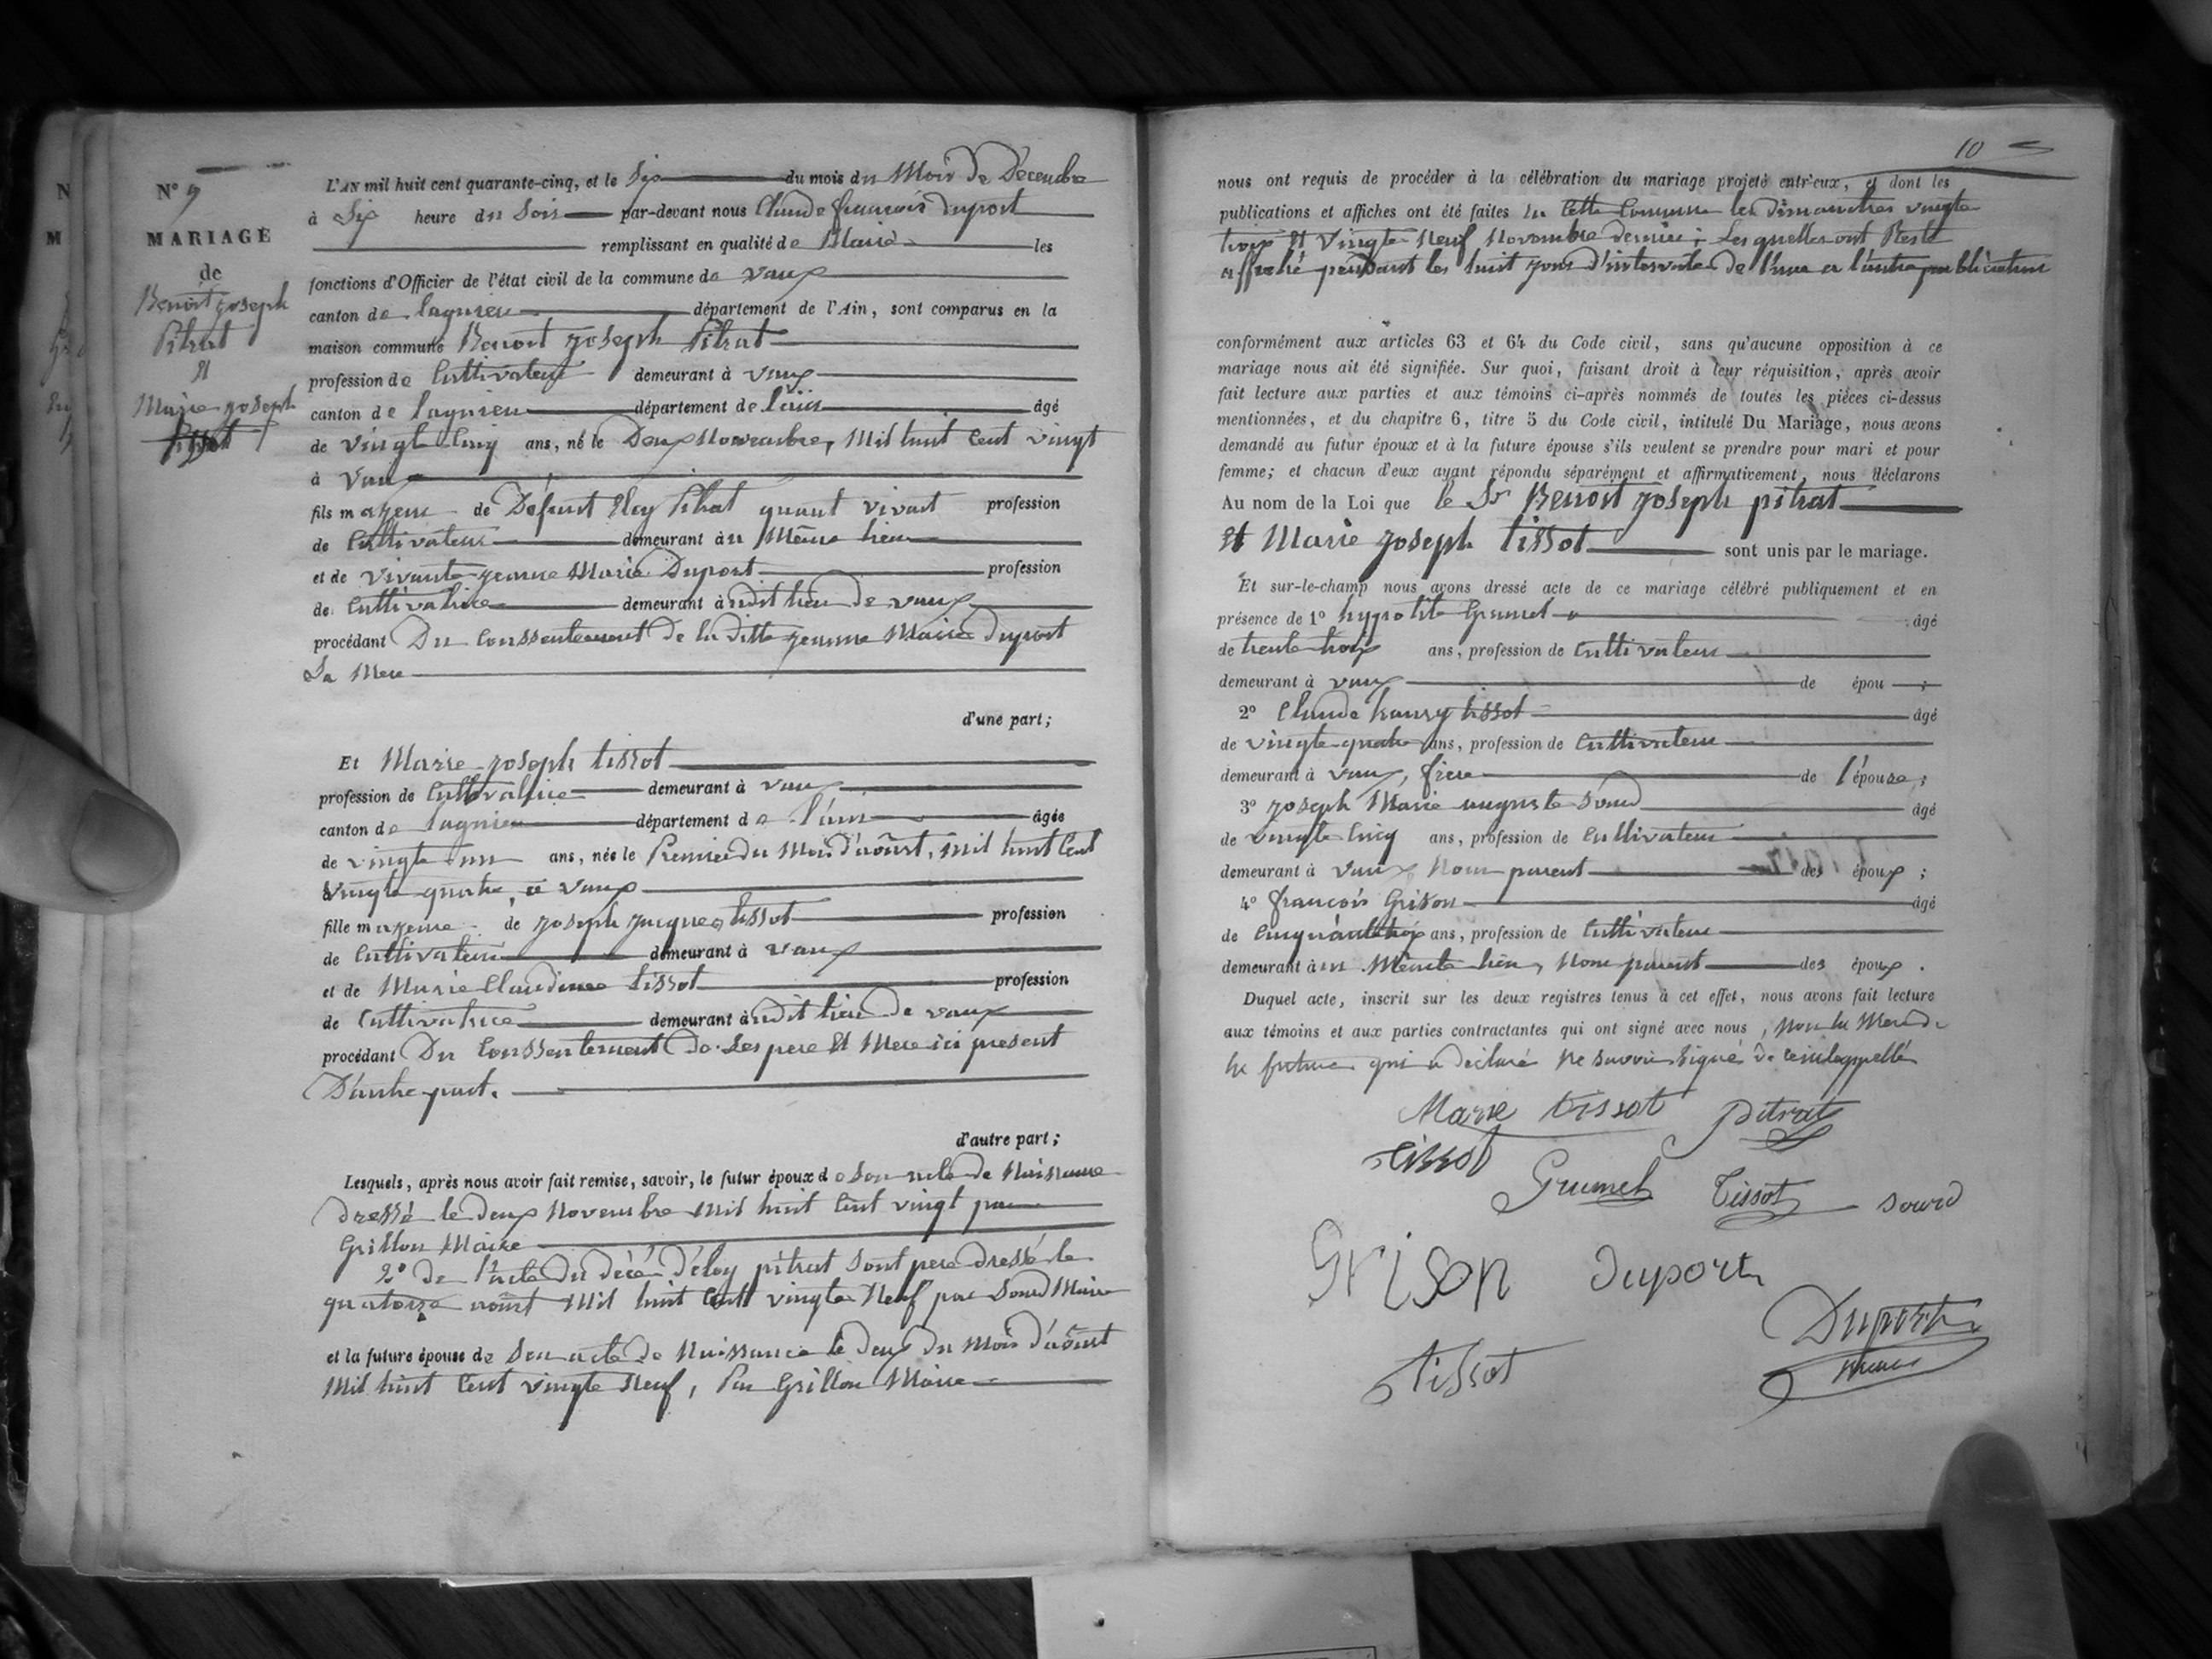 N
M
N° 9
MARIAGE
de
Benoit joseph
Pitrat
et
Marie joseph
tissot
L'AN mil huit cent quarante-cinq, et le Six du mois du Mois De Décembre
à Six heure du Soir par-devant nous Claude françois duport
remplissant en qualité de Maire les
fonctions d'Officier de l'état civil de la commune de vaux
canton de lagnieu département de l'Ain, sont comparus en la
maison commune Benoit joseph Pitrat
profession de Cultivateur demeurant à vaux
canton de lagnieu département de l'ain âgé
de vingt Cinq ans, né le Deux Novembre, Mil huit Cent vingt
à Vaux
fils majeur de Défunt Eloy Pitrat quant vivant profession
de Cultivateur demeurant au Même lieu
et de vivante jeanne Marie Duport profession
de Cultivatrice demeurant àudit lieu de vaux
procédant Du Conssentement De la ditte jeanne Marie duport
Sa Mere
d'une part;
Et Marie joseph tissot
profession de Cultivatrice demeurant à vaux
canton de lagnieu département de l'ain âgée
de vingte un ans, née le Premier du Mois d'aôust, mil huit Cent
vingte quatre, à vaux
fille majeure de joseph jacques tissot profession
de Cultivateur demeurant à vaux
et de Marie Claudine tissot profession
de Cultivatrice demeurant àudit lieu de vaux
procédant Du Conssentement De Ses pere Et Mere ici present
D'autre part.
d'autre part;
Lesquels, après nous avoir fait remise, savoir, le futur époux de Son acte de Naissance
dressé le deux Novembre Mil huit Cent vingt par
Grillon Maire
2° De l'acte Du décé D'eloy pitrat Sont pere dressé le
quatorze aoûst Mil huit Cent vingte Neuf par Sourd Maire
et la future épouse de Son acte De Naissance le deux Du Mois d'aoûst
Mil huit Cent vingte Neuf, Par Grillon Maire
10
nous ont requis de procéder à la célébration du mariage projeté entr'eux, et dont les
publications et affiches ont été faites En Cette Commune les Dimanches vingte
trois Et Vingte Neuf Novembre dernier; Les quelles ont Resté
affiché pendant les huit jours d'intervale De l'une a l'autre publication
conformément aux articles 63 et 64 du Code civil, sans qu'aucune opposition à ce
mariage nous ait été signifiée. Sur quoi, faisant droit à leur réquisition, après avoir
fait lecture aux parties et aux témoins ci-après nommés de toutes les pièces ci-dessus
mentionnées, et du chapitre 6, titre 5 du Code civil, intitulé Du Mariage, nous avons
demandé au futur époux et à la future épouse s'ils veulent se prendre pour mari et pour
femme; et chacun d'eux ayant répondu séparément et affirmativement, nous déclarons
Au nom de la Loi que le Sr Benoit joseph pitrat
Et Marie joseph tissot sont unis par le mariage.
Et sur-le-champ nous avons dressé acte de ce mariage célébré publiquement et en
présence de 1° hypolite Grumet âgé
de trente trois ans, profession de Cultivateur
demeurant à vaux de épou ;
2° Claude hanry tissot âgé
de vingte quatre ans, profession de Cultivateur
demeurant à vaux, frère de l'épouse;
3° joseph Marie auguste Sourd âgé
de vingte Cinq ans, profession de Cultivateur
demeurant à vaux Nom parent des époux;
4° françois Grison âgé
de Cinquante trois ans, profession de Cultivateur
demeurant àu Même lieu, Nom parent des époux.
Duquel acte, inscrit sur les deux registres tenus à cet effet, nous avons fait lecture
aux témoins et aux parties contractantes qui ont signé avec nous, Non la Mere de
la future qui a déclaré Ne Savoir Signé de
Marie tissot pitrat
tissot
Grumet Tissot sourd
Grison Duport
tissot Duport
maire